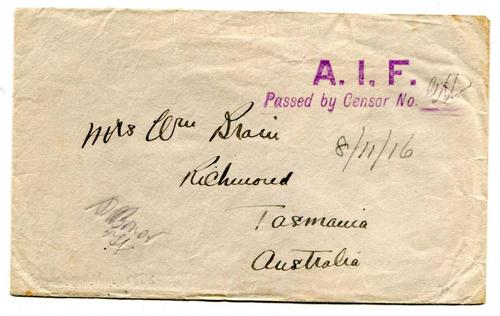 A. I. F.
Passed by Censor No.
Mrs Wm Brain
8/11/16
Richmond
Tasmania
Australia